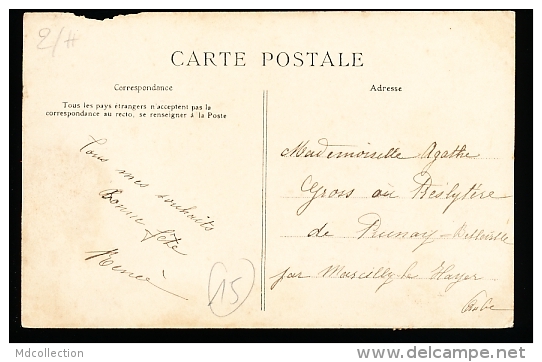 E/#
CARTE POSTALE
Correspondance
Tous les pays étrangers n'acceptent pas la
correspondance au recto, se renseigner à la Poste
Tous mes souhaits
Bonne fête
Renée
15
Adresse
Mademoiselle Agathe
Gross au Presbytère
de Prunay-Belleville
par Marcilly le Hayer
Aube
Mdcollection
delcampe.net